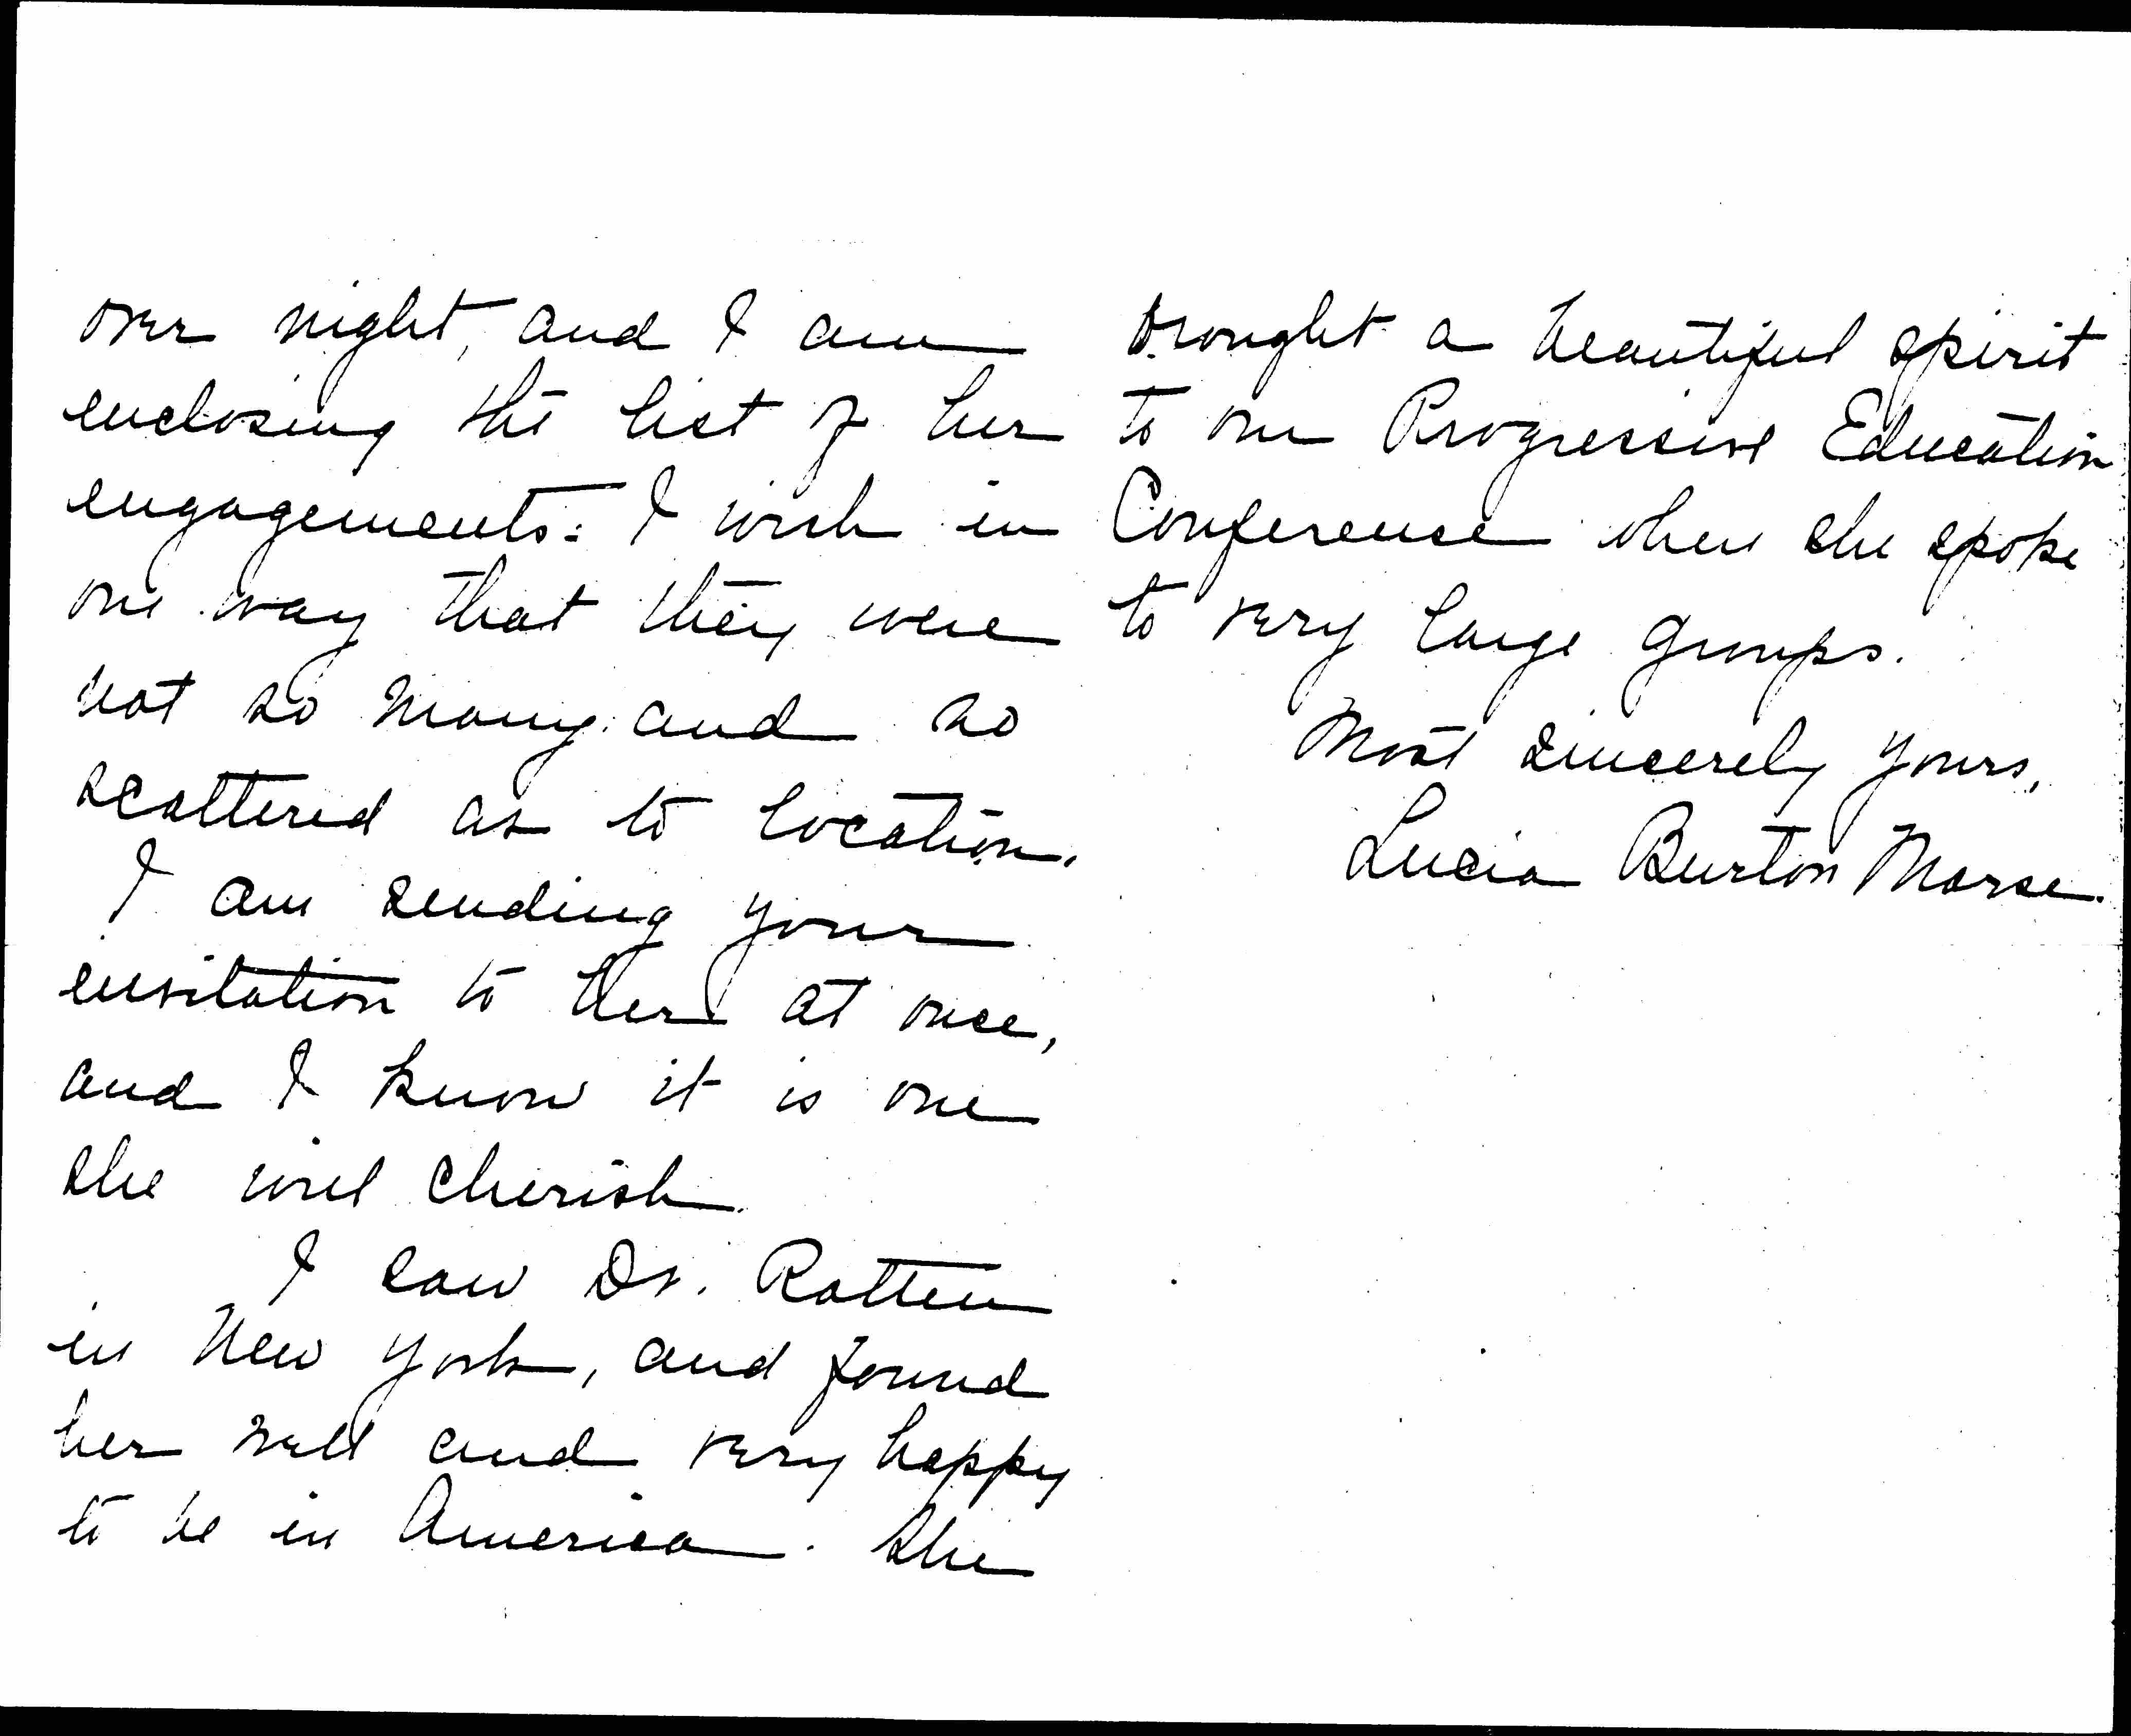 over night, and I am
enclosing the list of her
engagements. I wish in
one way that they were
not so many and so
scattered as to location.
I am sending your
invitation to her at once,
and I know it is one
she will cherish.
I saw Dr. Rotten
in New York, and found
her well and very happy
to be in America. She
brought a beautiful spirit
to our Progressive Education
Conference when she spoke
to very large groups.
Most sincerely yours,
Lucia Burton Morse.